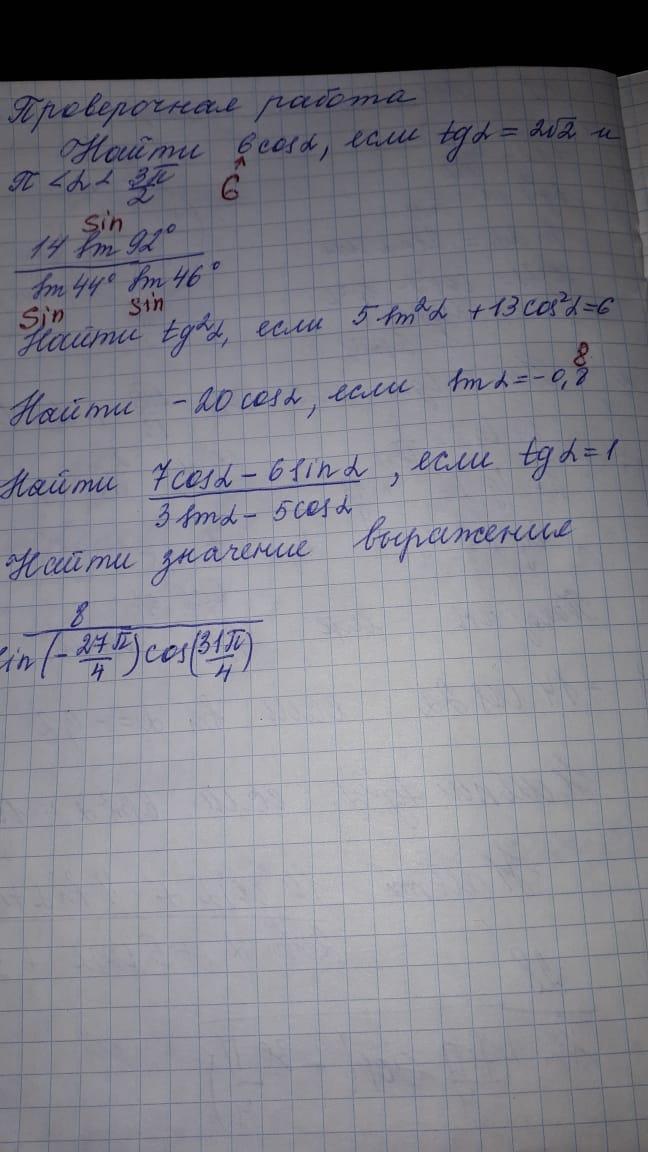 Проверочная работа
Найти 6 cosα, если tgα = 2√2 и
π < α < 3π/2
6
sin
14 sin 92°
sin 44° sin 46°
sin sin
Найти tg²α, если 5 sin²α + 13 cos²α = 6
8
Найти - 20 cosα, если sin α = - 0,8
Найти 7cosα - 6 sin α / 3 sin α - 5cosα, если tgα = 1
Найти значение выражения
8
sin(-27π/4) cos(31π/4)